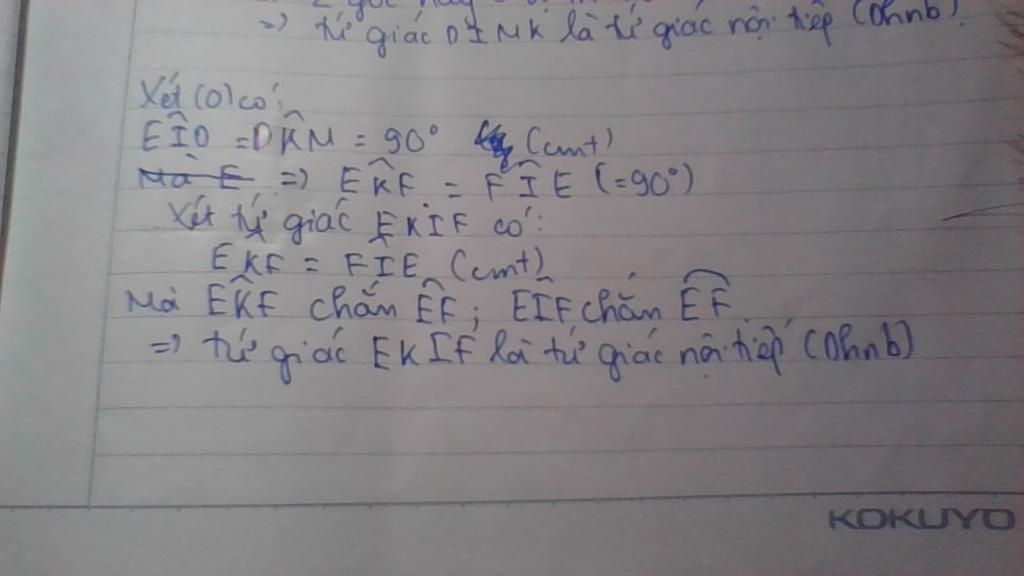 2 góc này
=> tứ giác DINK là tứ giác nội tiếp (Dhnb).
Xét (O) có:
EÎD = DK̂N = 90° (cmt)
Mà E => EK̂F = FÎE (=90°)
Xét tứ giác EKIF có:
EK̂F = FÎE (cmt)
Mà EK̂F chắn E͡F; EÎF chắn E͡F.
=> tứ giác EKIF là tứ giác nội tiếp (Dhnb)
KOKUYO